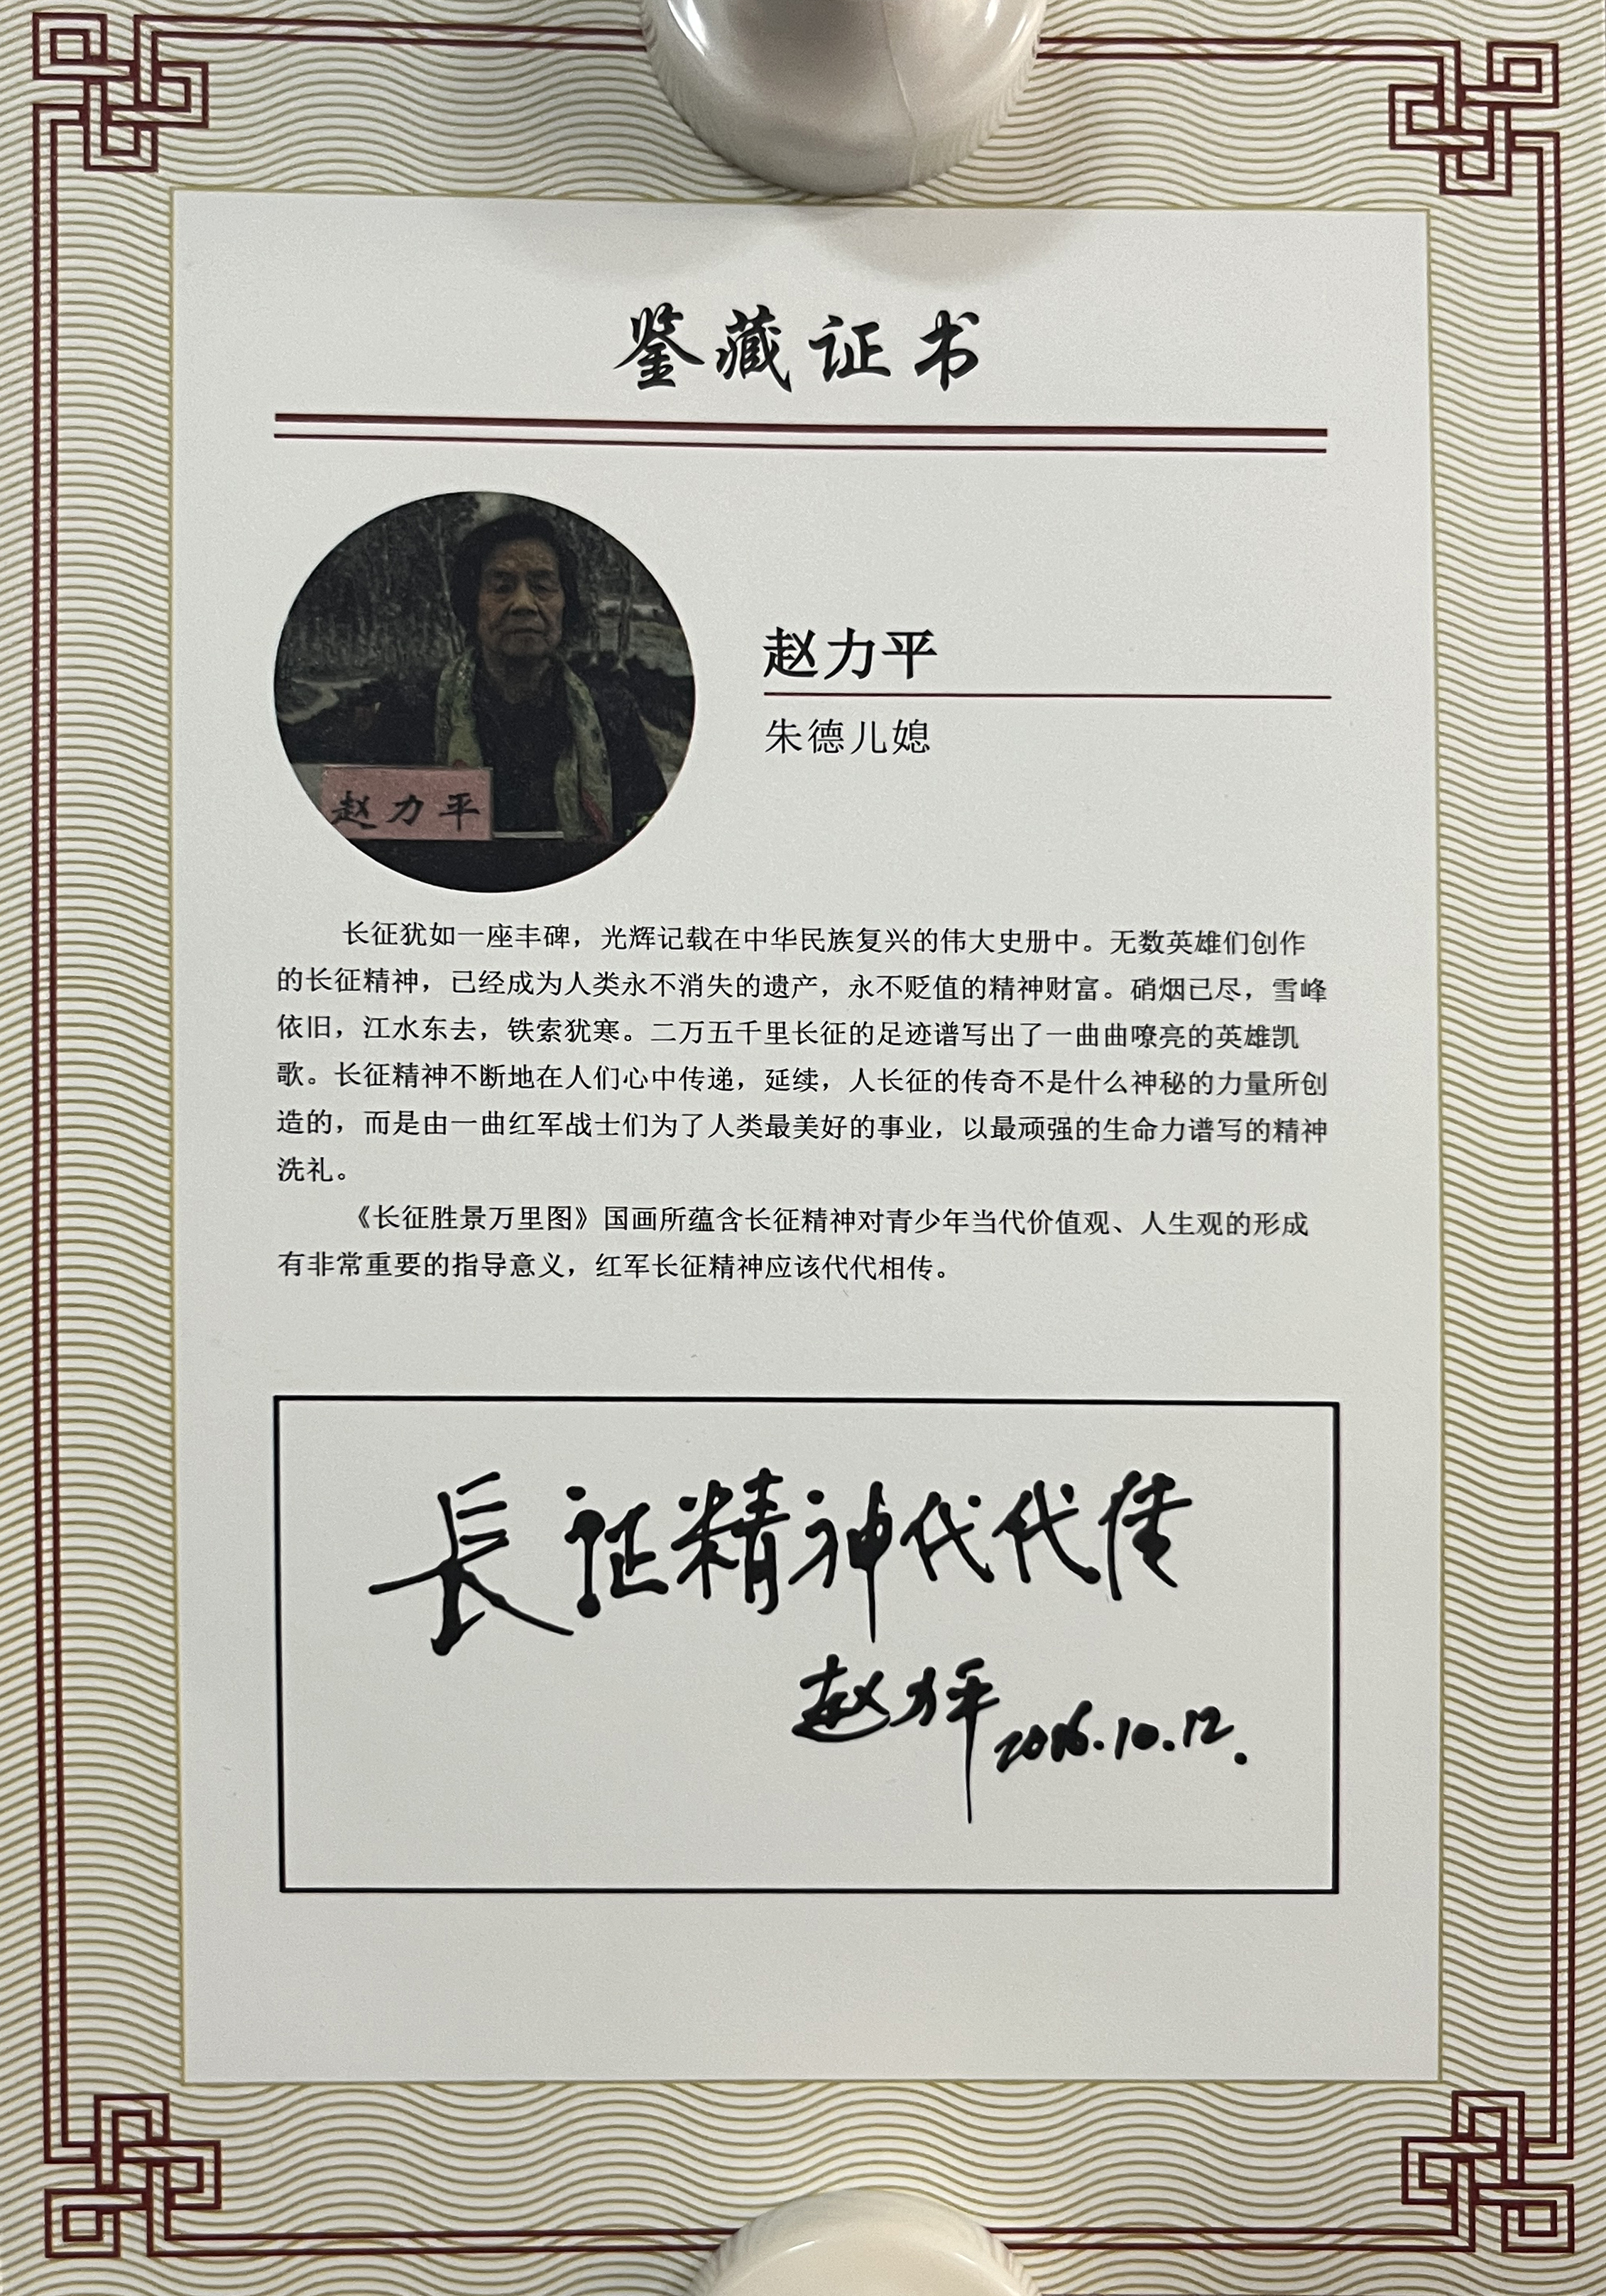 鉴藏证书
赵力平
朱德儿媳
赵力平
长征犹如一座丰碑，光辉记载在中华民族复兴的伟大史册中。无数英雄们创作
的长征精神，已经成为人类永不消失的遗产，永不贬值的精神财富。硝烟已尽，雪峰
依旧，江水东去，铁索犹寒。二万五千里长征的足迹谱写出了一曲曲嘹亮的英雄凯
歌。长征精神不断地在人们心中传递，延续，人长征的传奇不是什么神秘的力量所创
造的，而是由一曲红军战士们为了人类最美好的事业，以最顽强的生命力谱写的精神
洗礼。
《长征胜景万里图》国画所蕴含长征精神对青少年当代价值观、人生观的形成
有非常重要的指导意义，红军长征精神应该代代相传。
長征精神代代传
赵力平 2016.10.12.